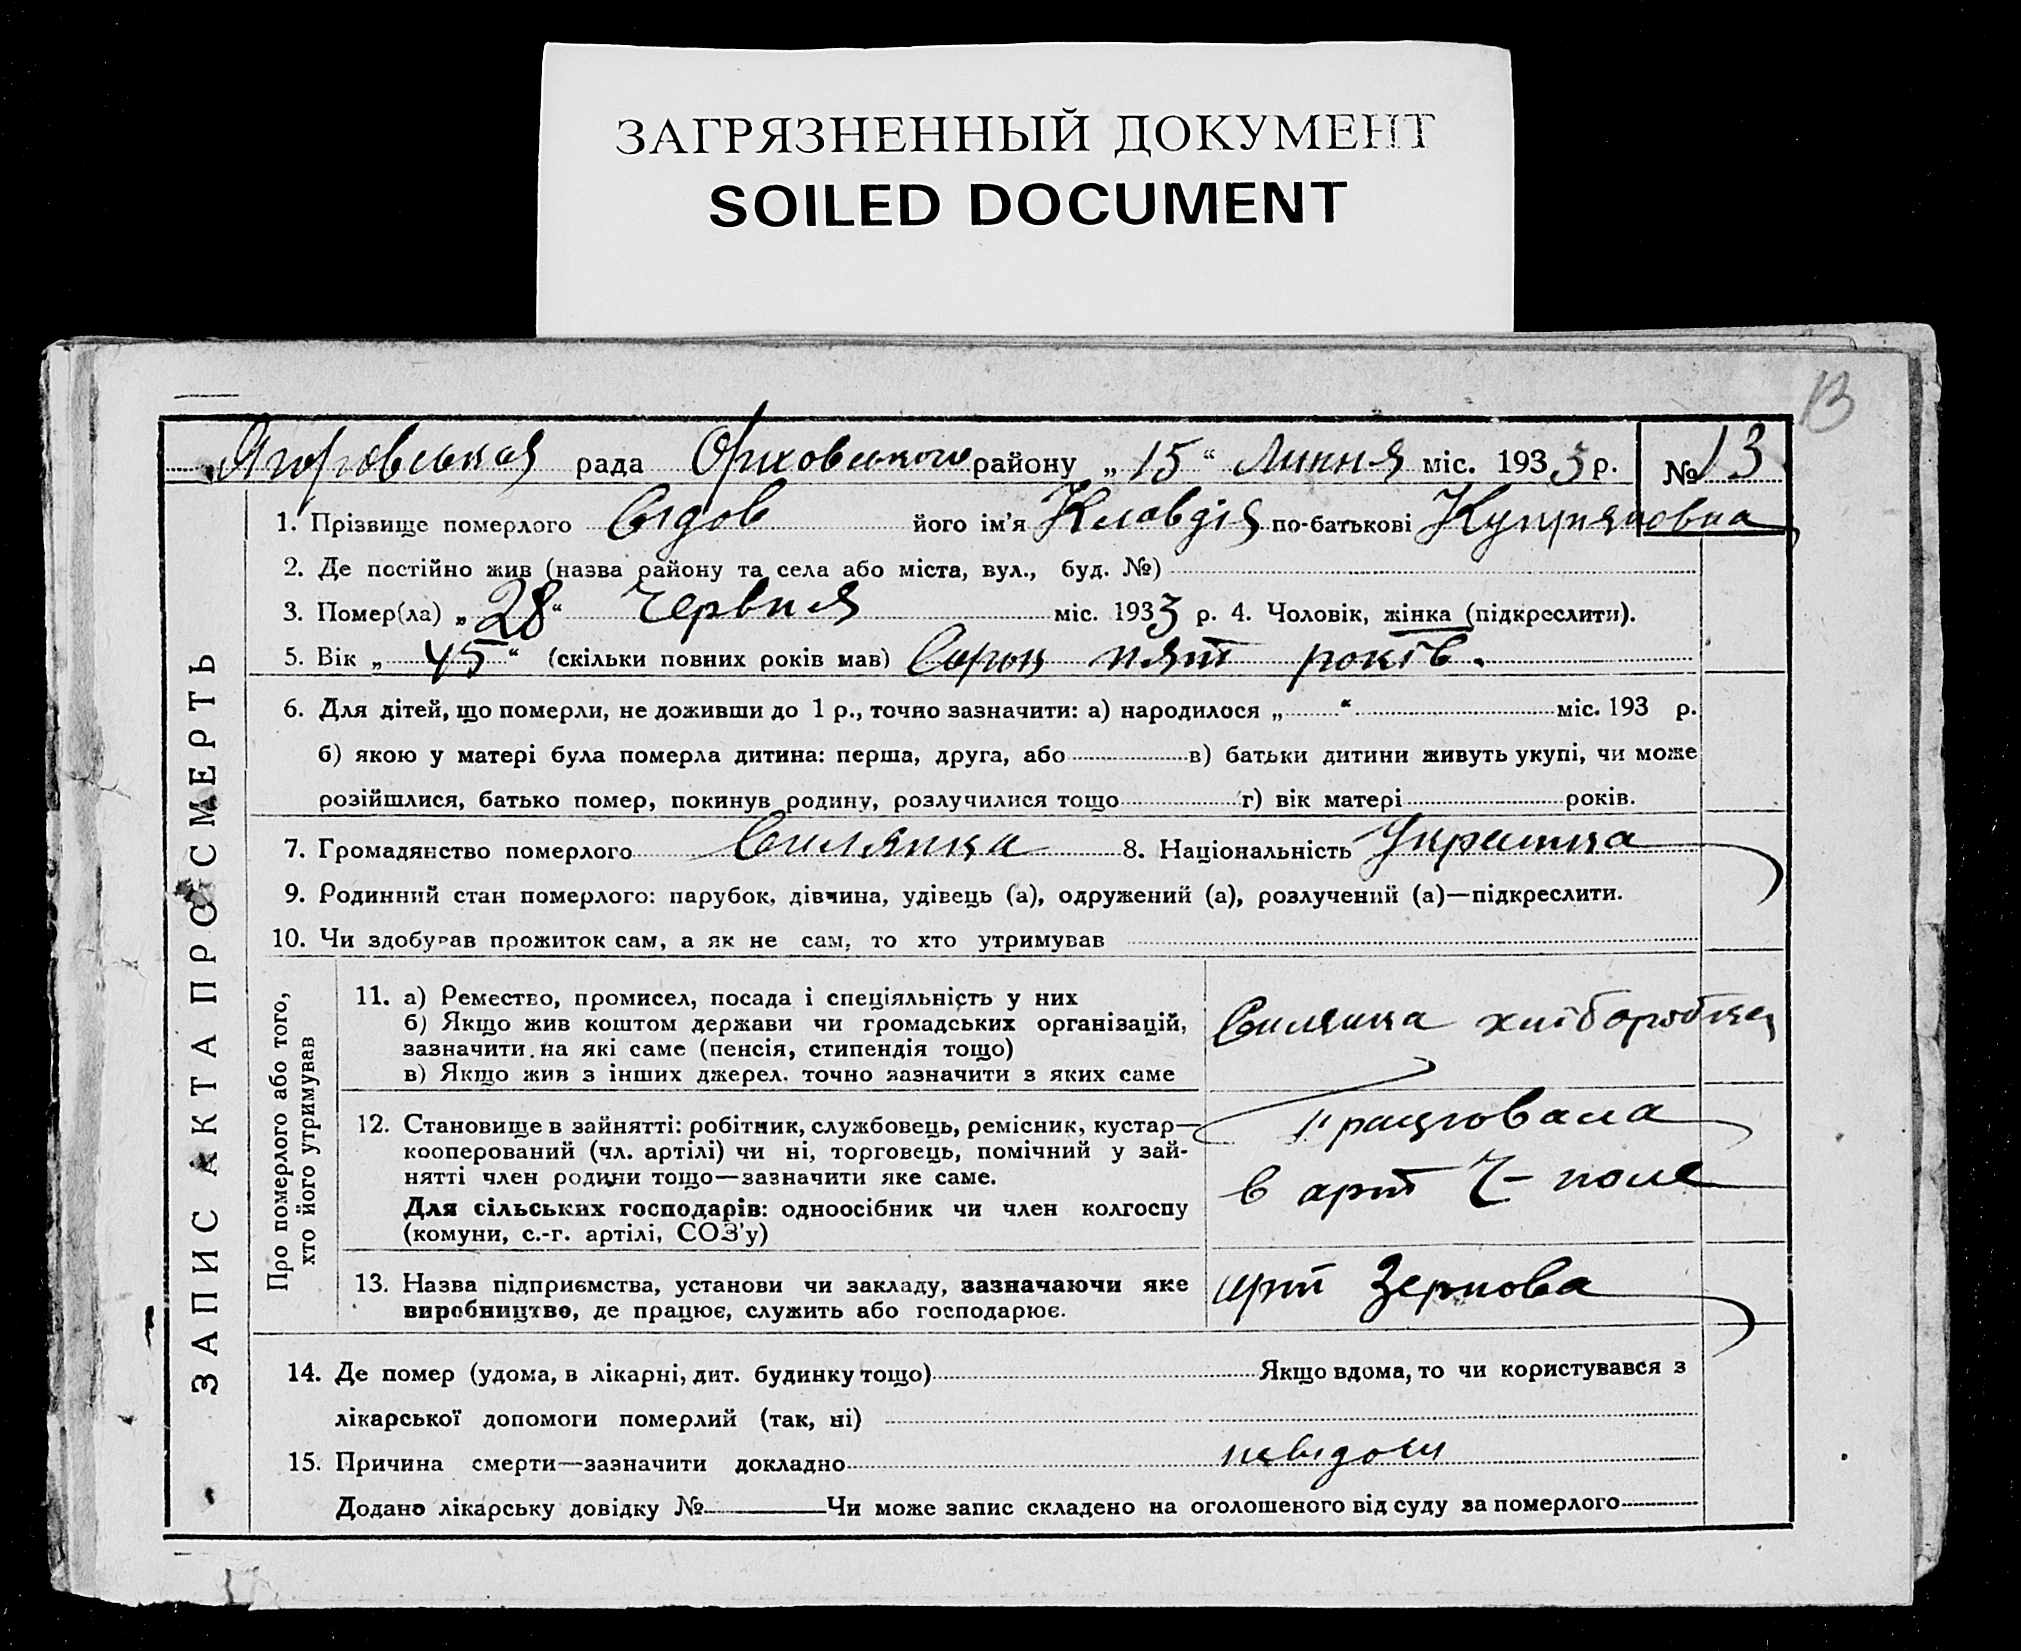 ЗАГРЯЗНЕННЫЙ ДОКУМЕНТ
SOILED DOCUMENT
13
Ягоровська рада Оріховського району „15“ Липня міс. 1933 р. № 13
ЗАПИС АКТА ПРО СМЕРТЬ
1. Прізвище померлого Сідов його ім'я Клавдія по-батькові Купріяновна
2. Де постійно жив (назва району та села або міста, вул., буд. №)
3. Помер(ла) „28“ Червня міс. 1933 р. 4. Чоловік, жінка (підкреслити).
5. Вік „45“ (скільки повних років мав) Сорок пять років.
6. Для дітей, що померли, не доживши до 1 р., точно зазначити: а) народилося „ “ міс. 193 р.
б) якою у матері була померла дитина: перша, друга, або в) батьки дитини живуть укупі, чи може
розійшлися, батько помер, покинув родину, розлучилися тощо г) вік матері років.
7. Громадянство померлого Силянка 8. Національність Украинка
9. Родинний стан померлого: парубок, дівчина, удівець (а), одружений (а), розлучений (а)—підкреслити.
10. Чи здобував прожиток сам, а як не сам, то хто утримував
Про померлого або того,
хто його утримував
11. а) Ремество, промисел, посада і спеціяльність у них
б) Якщо жив коштом держави чи громадських організацій,
зазначити на які саме (пенсія, стипендія тощо)
в) Якщо жив з інших джерел. точно зазначити з яких саме
Силянка хліборобка
12. Становище в зайнятті: робітник, службовець, ремісник, кустар—
кооперований (чл. артілі) чи ні, торговець, помічний у зай-
нятті член родини тощо—зазначити яке саме.
Для сільських господарів: одноосібник чи член колгоспу
(комуни, с.-г. артілі, СОЗ'у)
працювала
в арт Ч- поле
13. Назва підприємства, установи чи закладу, зазначаючи яке
виробництво, де працює, служить або господарює.
арт Зернова
14. Де помер (удома, в лікарні, дит. будинку тощо) Якщо вдома, то чи користувався з
лікарської допомоги померлий (так, ні)
15. Причина смерти—зазначити докладно невідом
Додано лікарську довідку № Чи може запис складено на оголошеного від суду за померлого